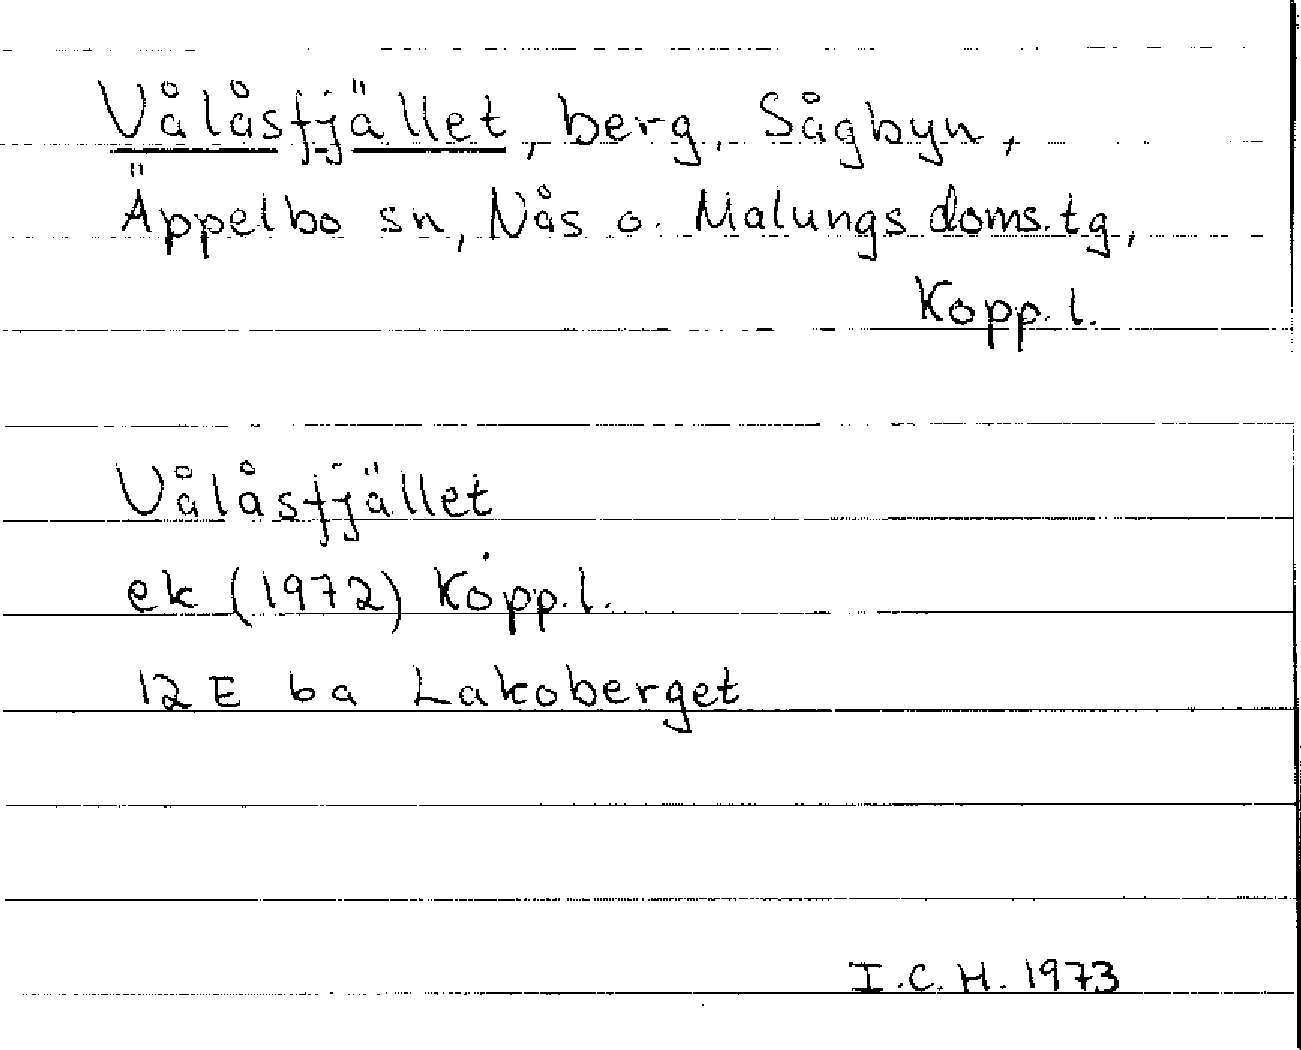 Vålåsfjället, berg, Sågbyn,
Äppelbo sn, Nås o. Malungs doms.tg,
Kopp. l.
Vålåsfjället
ek (1972) Kopp. l.
12 E 6a Lakoberget
I.C.H. 1973